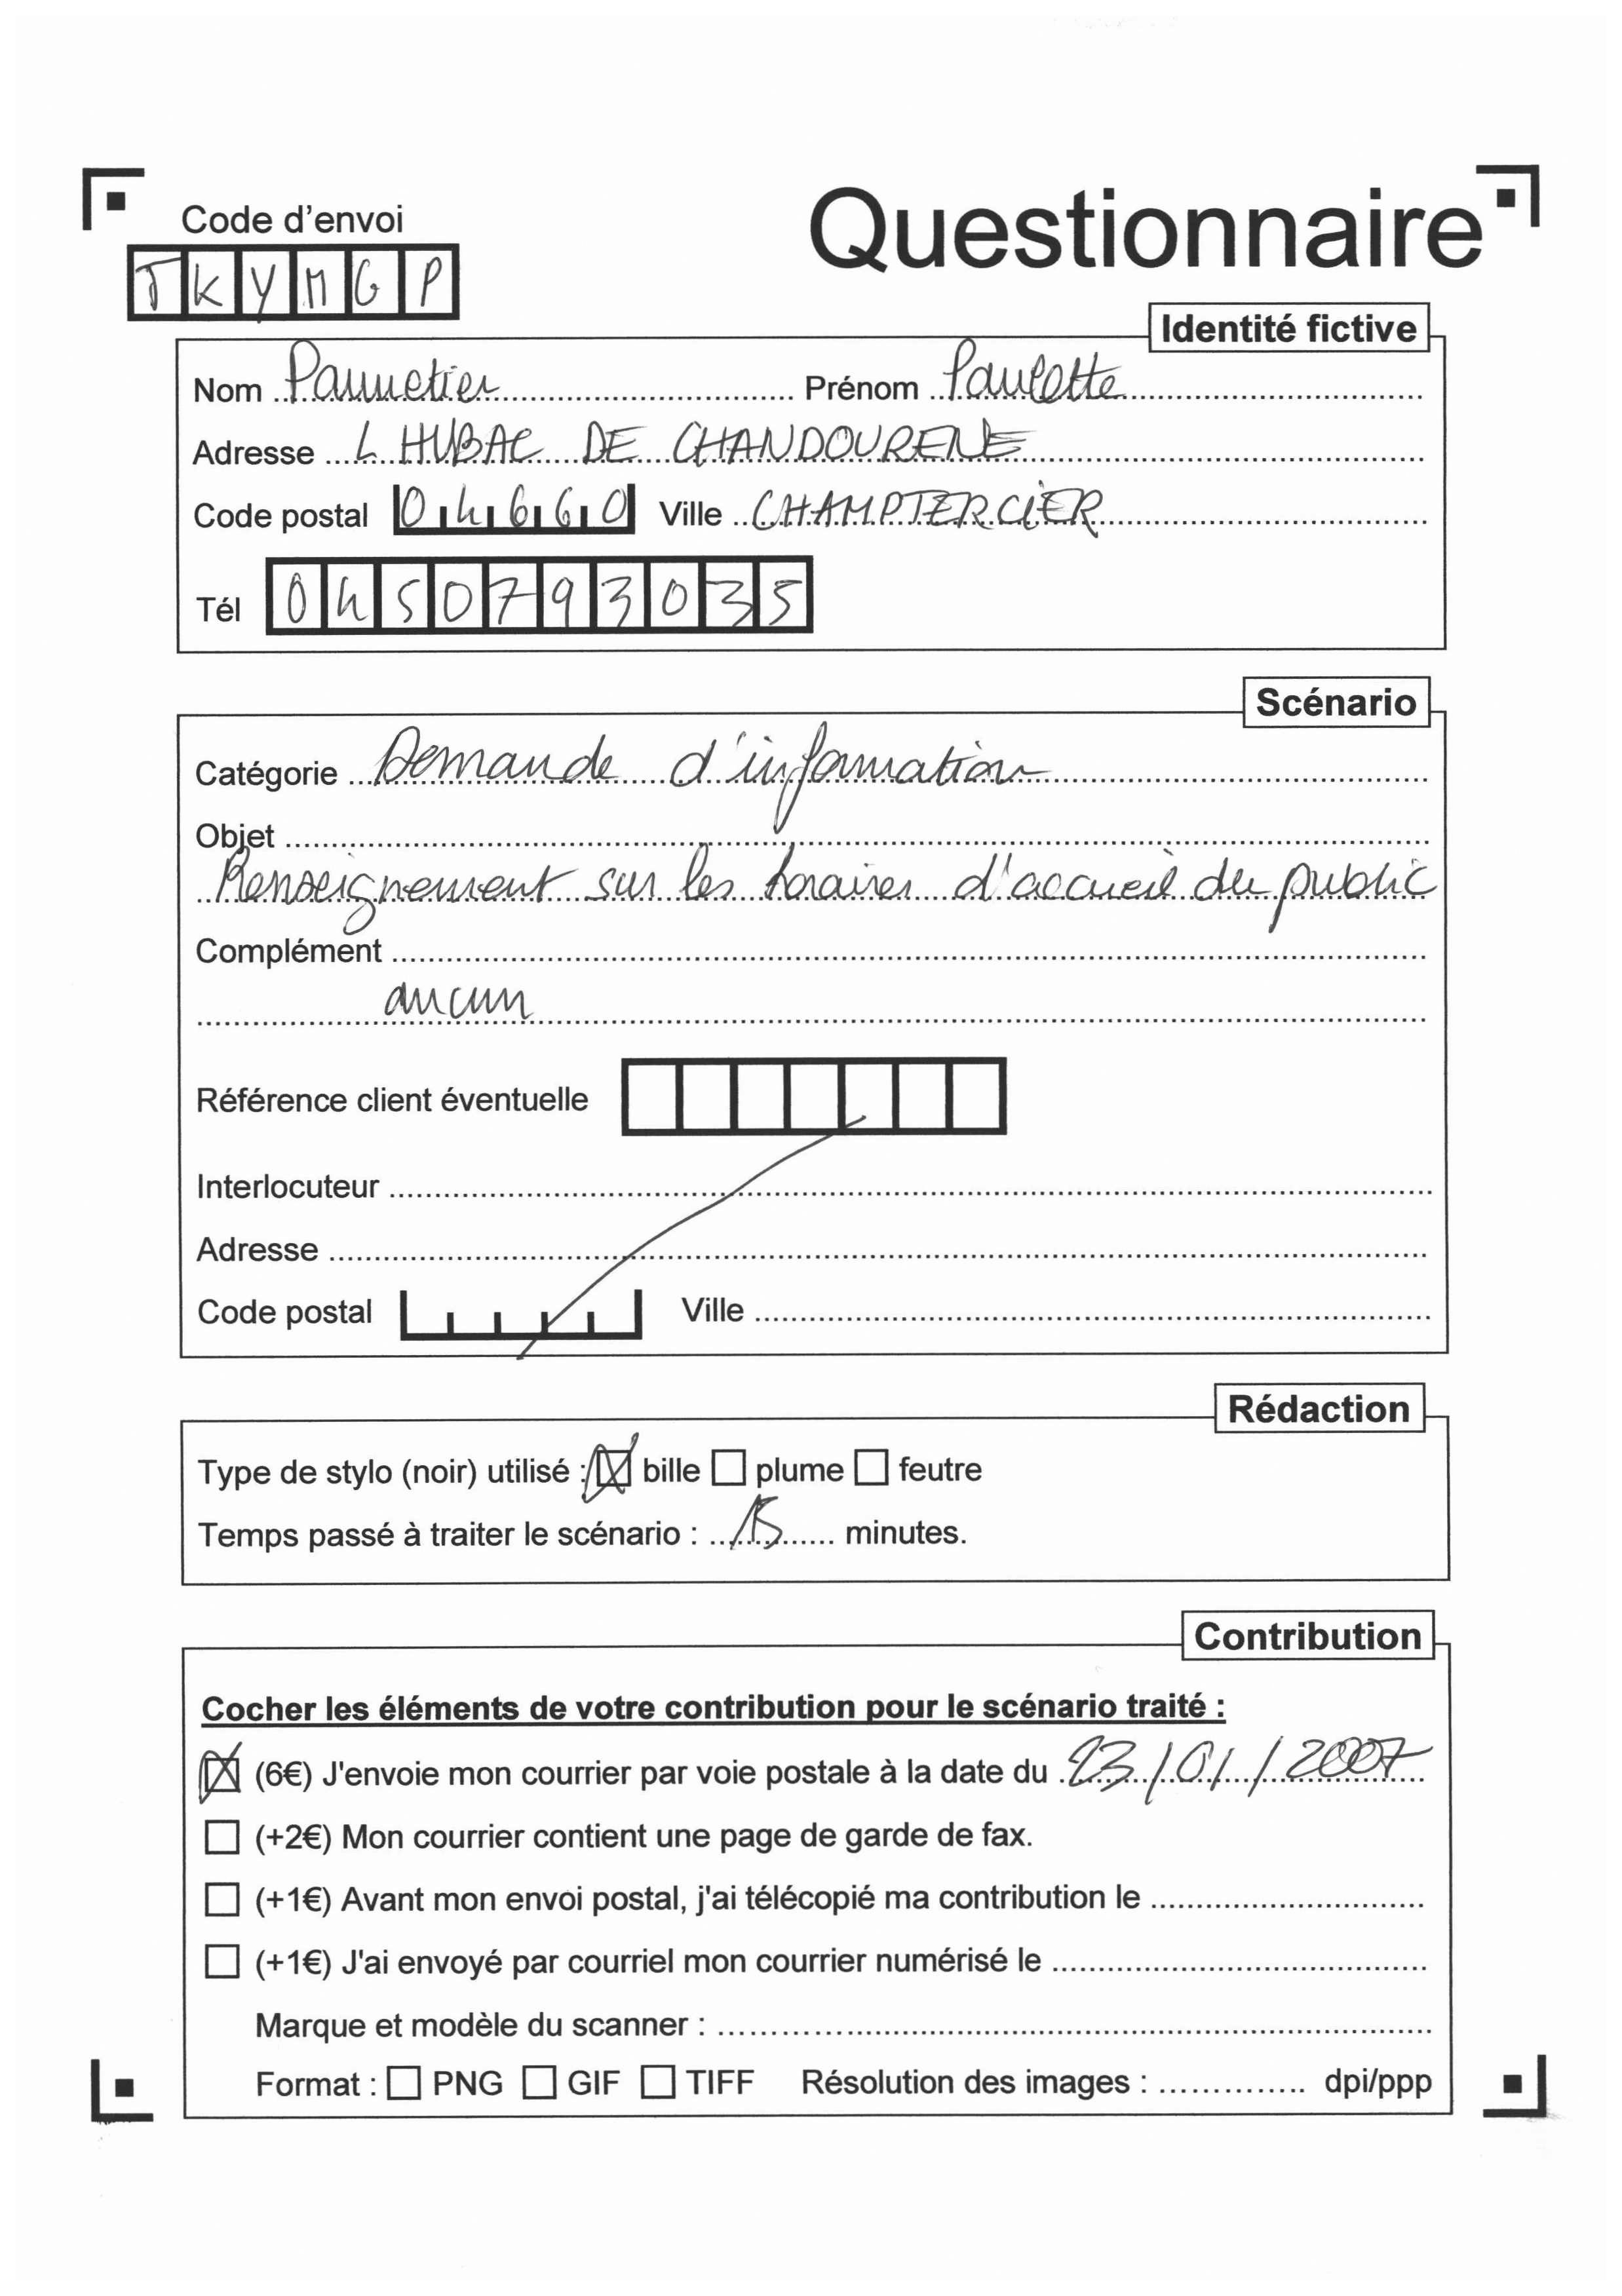 Code d'envoi
Questionnaire
JKYMGP
Identité fictive
Nom Paumetier Prénom Paulette
Adresse L HUBAC DE CHANDOURENE
Code postal 04660 Ville CHAMPTERCIER
Tél 0450793035
Scénario
Catégorie Demande d'information
Objet
Renseignement sur les horaires d'accueil du public
Complément
aucun
Référence client éventuelle
Interlocuteur
Adresse
Code postal Ville
Rédaction
Type de stylo (noir) utilisé : bille plume feutre
Temps passé à traiter le scénario : 15 minutes.
Contribution
Cocher les éléments de votre contribution pour le scénario traité :
(6€) J'envoie mon courrier par voie postale à la date du 23/01/2007
(+2€) Mon courrier contient une page de garde de fax.
(+1€) Avant mon envoi postal, j'ai télécopié ma contribution le
(+1€) J'ai envoyé par courriel mon courrier numérisé le
Marque et modèle du scanner :
Format : PNG GIF TIFF Résolution des images : dpi/ppp